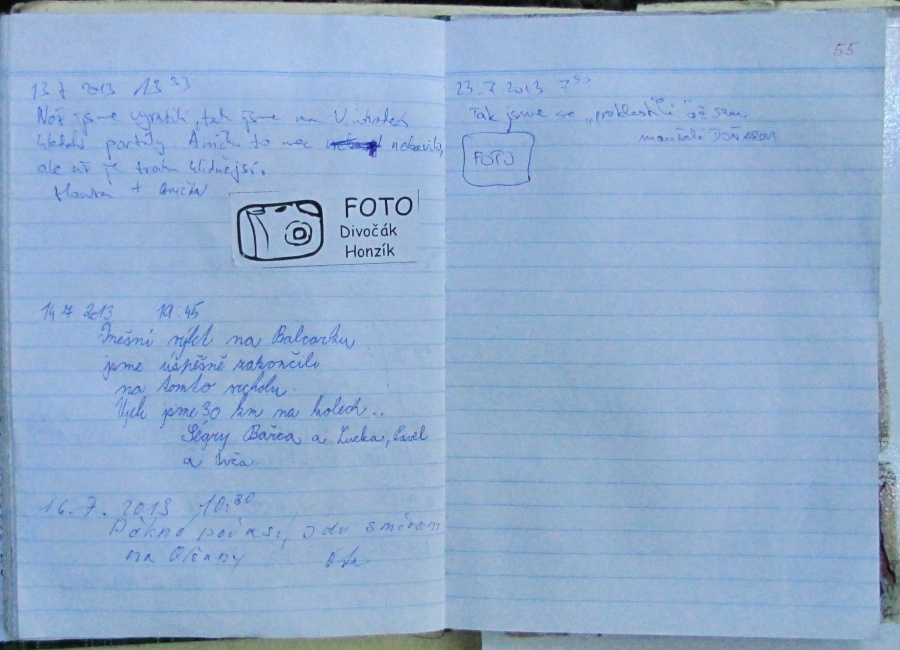 13 7 2013 13 33
Než jsme vyrazili, tak jsme na
hledali partyzány. Aničku to moc nebavilo,
ale už je trochu klidnější.
+ Anička
FOTO
Divočák
Honzík
14 7 2013 19:45
Dnešní výlet na Balcarku
jsme úspěšně zakončili
na tomto vrcholu.
Ujeli jsme 30 km na kolech..
Ségry Bářca a Lucka, Pavel
a Ivča
16. 7. 2013 10:30
Pěkné počasí, jdu směrem
na Olšany
55
23. 7. 2013 7 30
Tak jsme se „proklestili" až sem
manželé DOŇAROVI
FOTO